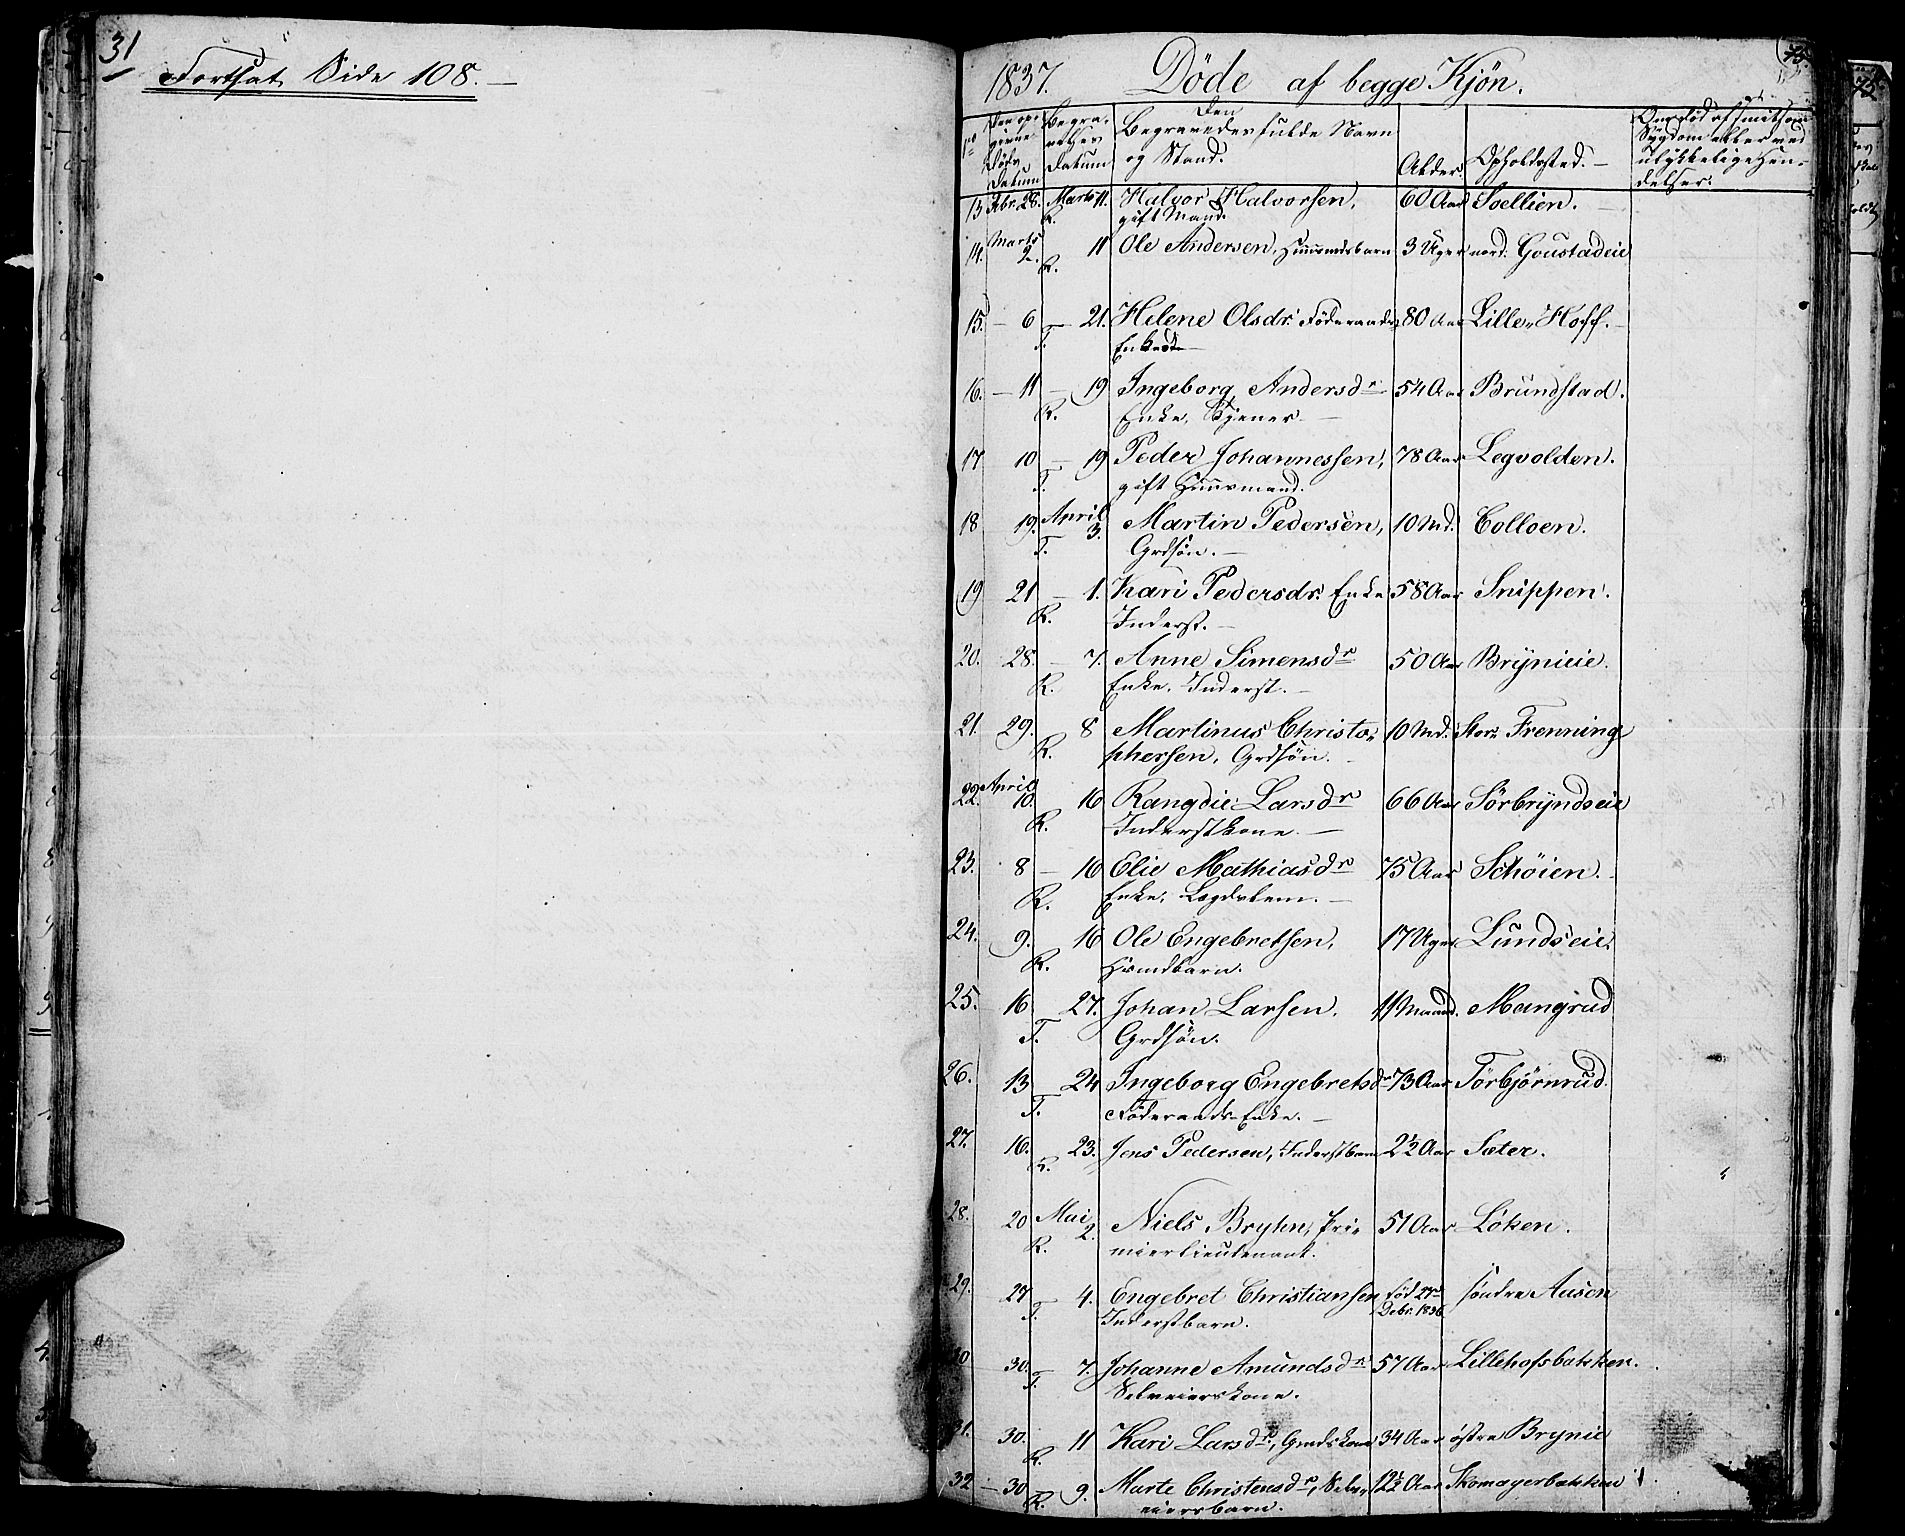 31
Fortsat Side 108. —
1837. Döde af begge Kjön.
No
Den opgivne Döds Datum
Begravelses Datum
Den Begravedes fulde Navn og Stand.
Alder.
Opholdssted. —
13 Febr. 28. Marts 11. Halvor Halvorsen, 60 Aar Soellien.
R. gift Mand.
14. Marts 2. 11 Ole Andersen, Huusmdsbarn 3 Uger nord: Goustadeie
R.
15. — 6 — 21. Helene Olsdr. Föderaads 80 Aar Lille Hoff.
T. Enke
16. — 11 — 19 Ingeborg Andersdr 54 Aar Brundstad.
R. Enke, Tjener —
17 10 — 19 Peder Johannessen, 78 Aar Legvolden.
T. gift Huusmand.
18 19. April 3. Martin Pedersen, 10 Md. Colloen.
T. Grdsön. —
19 21 — 1. Kari Pedersdr. Enke 58 Aar Snippen.
R. Inderst. —
20. 28. — 7. Anne Simensdr 50 Aar Brynieie.
R. Enke, Inderst. —
21. 29. 8 Martinus Christo- 10 Md. Stor Frenning
R. phersen, Grdsön. —
22. April 10. 16 Rangdie Larsdr 66 Aar Sörbryndseie
R. Inderstkone. —
23. 8 — 16 Elie Mathiasdr 75 Aar Schöien. —
R. Enke, Lægdslem. —
24. 9. 16 Ole Engebretsen, 17 Uger Lundseie.
R. Hsmdbarn.
25. 16 27. Johan Larsen. 11 Maaned. Mangrud
T. Grdsön.
26. 13 24 Ingeborg Engebretsdr 73 Aar Torbjörnrud.
T. Föderaads Enke. —
27. 16. 23. Jens Pedersen, Inderstbarn 2½ Aar Sæter.
R.
28. 20 Mai 2. Niels Bryhn, Pri- 51 Aar Löken.
R. mierlieutenant.
29. 27 — 4. Engebret Christiansen föd 27de Debr. 1836 söndre Aasen
T. Inderstbarn.
30 30. — 7. Johanne Amundsdr 57 Aar Lillehofsbakken.
T. Selveierskone.
31. 30. 11 Kari Larsdr, Grmdskone 34 Aar östre Brynie
R.
32 — 30 9. Marte Christensdr, Selv- 12½ Aar Skomagerbakken
R. eiersbarn.